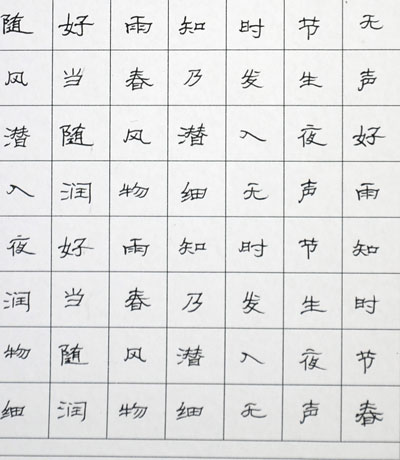 随好雨知时节无
风当春乃发生声
潜随风潜入夜好
入润物细无声雨
夜好雨知时节知
润当春乃发生时
物随风潜入夜节
细润物细无声春